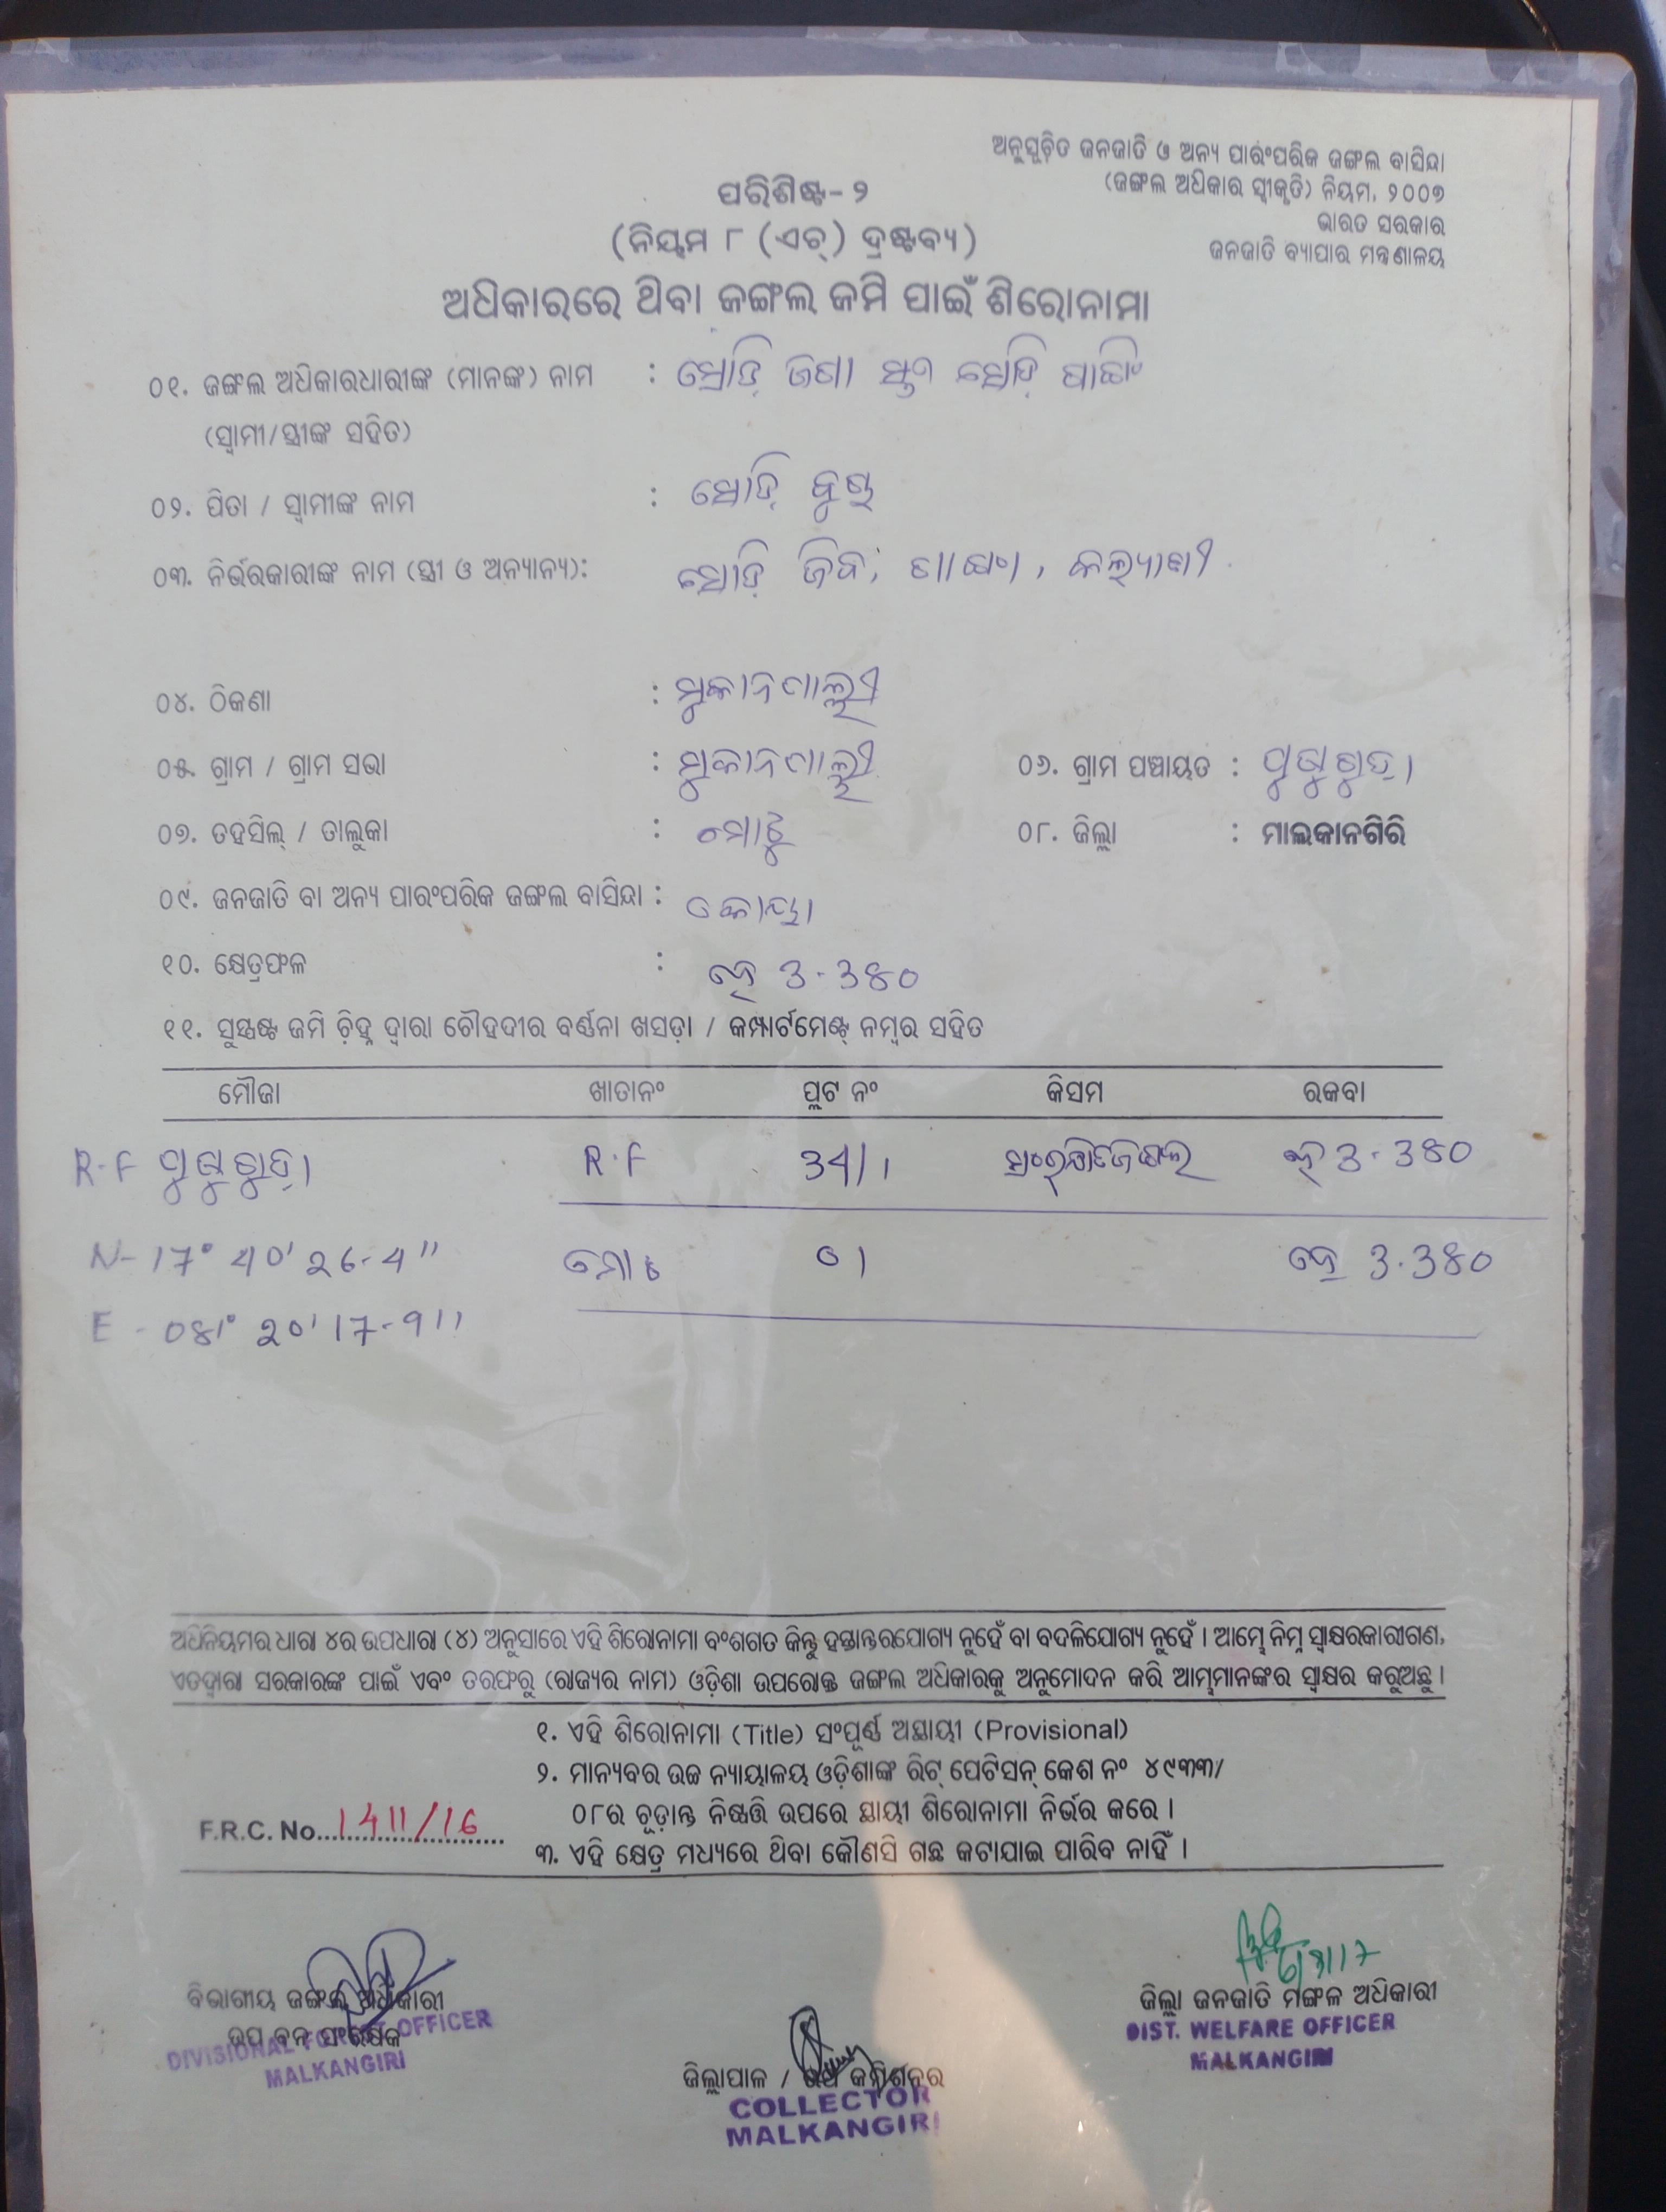 ଅନୁସୂଚିତ ଜନଜାତି ଓ ଅନ୍ୟ ପାରଂପରିକ ଜଙ୍ଗଲ ବାସିନ୍ଦା
(ଜଙ୍ଗଲ ଅଧିକାର ସ୍ୱୀକୃତି) ନିୟମ, ୨୦୦୭
ଭାରତ ସରକାର
ଜନଜାତି ବ୍ୟାପାର ମନ୍ତ୍ରଣାଳୟ
ପରିଶିଷ୍ଟ-୨
(ନିୟମ ୮ (ଏଚ୍) ଦ୍ରଷ୍ଟବ୍ୟ)
ଅଧିକାରରେ ଥିବା ଜଙ୍ଗଲ ଜମି ପାଇଁ ଶିରୋନାମା
୦୧. ଜଙ୍ଗଲ ଅଧିକାରଧାରୀଙ୍କ (ମାନଙ୍କ) ନାମ :
(ସ୍ୱାମୀ/ସ୍ତ୍ରୀଙ୍କ ସହିତ)
୦୨. ପିତା / ସ୍ୱାମୀଙ୍କ ନାମ :
୦୩. ନିର୍ଭରକାରୀଙ୍କ ନାମ (ସ୍ତ୍ରୀ ଓ ଅନ୍ୟାନ୍ୟ):
୦୪. ଠିକଣା :
୦୫. ଗ୍ରାମ / ଗ୍ରାମ ସଭା : ୦୬. ଗ୍ରାମ ପଞ୍ଚାୟତ :
୦୭. ତହସିଲ୍ / ତାଲୁକା : ମୋଟୁ ୦୮. ଜିଲ୍ଲା : ମାଲକାନଗିରି
୦୯. ଜନଜାତି ବା ଅନ୍ୟ ପାରଂପରିକ ଜଙ୍ଗଲ ବାସିନ୍ଦା : କୋୟା
୧୦. କ୍ଷେତ୍ରଫଳ : ହେ 3.380
୧୧. ସୁସ୍ପଷ୍ଟ ଜମି ଚିହ୍ନ ଦ୍ୱାରା ଚୌହଦୀର ବର୍ଣ୍ଣନା ଖସଡ଼ା / କମ୍ପାର୍ଟମେଣ୍ଟ୍ ନମ୍ବର ସହିତ
ମୌଜା ଖାତାନଂ ପ୍ଲଟ ନଂ କିସମ ରକବା
R.F R.F 341/1 ହେ 3.380
N- 17° 40' 26.4" ମୋଟ 01 ହେ 3.380
E - 081° 20' 17.9"
ଅଧିନିୟମର ଧାରା ୪ର ଉପଧାରା (୪) ଅନୁସାରେ ଏହି ଶିରୋନାମା ବଂଶଗତ କିନ୍ତୁ ହସ୍ତାନ୍ତରଯୋଗ୍ୟ ନୁହେଁ ବା ବଦଳିଯୋଗ୍ୟ ନୁହେଁ । ଆମ୍ଭେ ନିମ୍ନ ସ୍ୱାକ୍ଷରକାରୀଗଣ,
ଏତଦ୍ଦ୍ୱାରା ସରକାରଙ୍କ ପାଇଁ ଏବଂ ତରଫରୁ (ରାଜ୍ୟର ନାମ) ଓଡ଼ିଶା ଉପରୋକ୍ତ ଜଙ୍ଗଲ ଅଧିକାରକୁ ଅନୁମୋଦନ କରି ଆମ୍ଭମାନଙ୍କର ସ୍ୱାକ୍ଷର କରୁଅଛୁ ।
୧. ଏହି ଶିରୋନାମା (Title) ସଂପୂର୍ଣ୍ଣ ଅସ୍ଥାୟୀ (Provisional)
୨. ମାନ୍ୟବର ଉଚ୍ଚ ନ୍ୟାୟାଳୟ ଓଡ଼ିଶାଙ୍କ ରିଟ୍ ପେଟିସନ୍ କେଶ ନଂ ୪୯୩୩/
୦୮ର ଚୂଡ଼ାନ୍ତ ନିଷ୍ପତ୍ତି ଉପରେ ସ୍ଥାୟୀ ଶିରୋନାମା ନିର୍ଭର କରେ ।
F.R.C. No. 1411/16
୩. ଏହି କ୍ଷେତ୍ର ମଧ୍ୟରେ ଥିବା କୌଣସି ଗଛ କଟାଯାଇ ପାରିବ ନାହିଁ ।
6/3/17
ବିଭାଗୀୟ ଜଙ୍ଗଲ ଅଧିକାରୀ
ଉପ ବନ ସଂରକ୍ଷକ
DIVISIONAL FOREST OFFICER
MALKANGIRI
ଜିଲ୍ଲା ଜନଜାତି ମଙ୍ଗଳ ଅଧିକାରୀ
DIST. WELFARE OFFICER
MALKANGIRI
ଜିଲ୍ଲାପାଳ / ଉପ କମିଶନର
COLLECTOR
MALKANGIRI